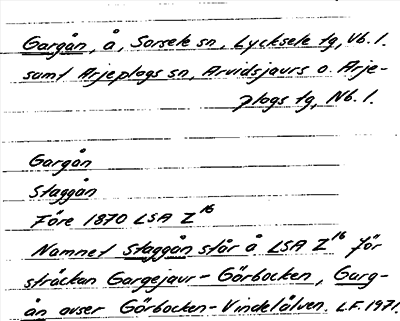 Gargån, å, Sorsele sn, Lycksele tg, Vb. l.
samt Arjeplogs sn, Arvidsjaurs o. Arje-
plogs tg, Nb. l.
Gargån
Staggån
Före 1870 LSA Z¹⁶
Namnet Staggån står å LSA Z¹⁶ för
sträckan Gargejaur - Görbocken, Garg-
ån avser Görbocken - Vindelälven. L.F. 1971.